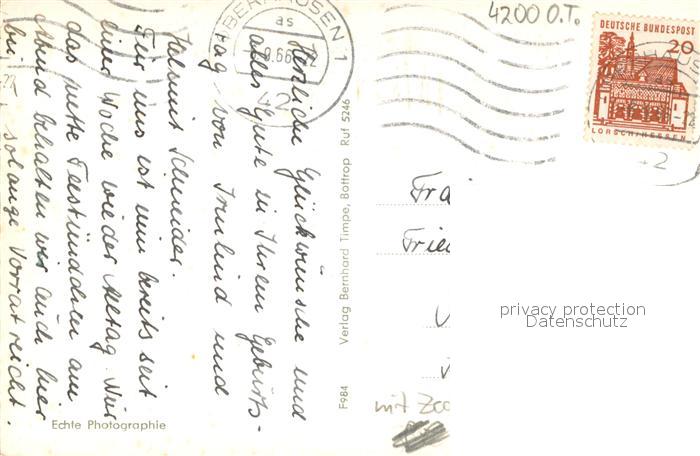 4200 O.T.
OBERHAUSEN 1
as
DEUTSCHE BUNDESPOST
20
LORSCH/HESSEN
Herzliche Glückwünsche und
alles Gute in Ihrem Geburts-
tag von Irmlind und
Helmut Schneider.
Für uns ist nun bereits seit
einer Woche wieder Alltag. Nur
das nette Teestündchen am
Abend behalten wir auch hier
bei, solange Vorrat reicht.
Echte Photographie
F984
Verlag Bernhard Timpe, Bottrop Ruf 5246
mit Zoo
privacy protection
Datenschutz